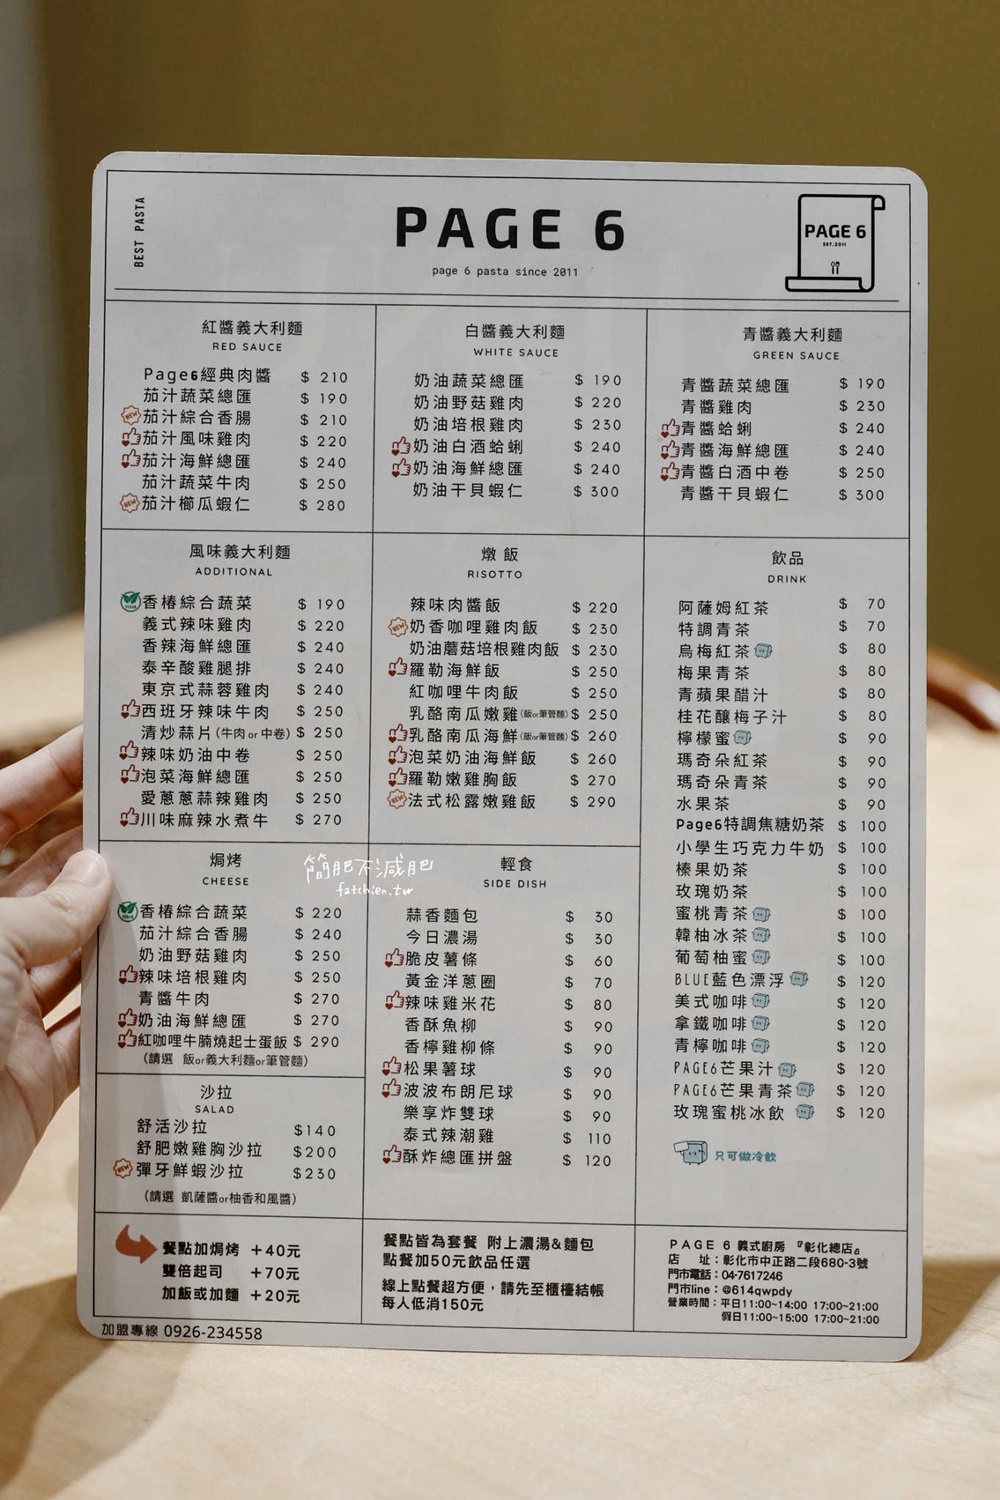 BEST PASTA
PAGE 6
page 6 pasta since 2011
PAGE 6
EST.2011
紅醬義大利麵
RED SAUCE
Page6經典肉醬 $ 210
茄汁蔬菜總匯 $ 190
NEW 茄汁綜合香腸 $ 210
茄汁風味雞肉 $ 220
茄汁海鮮總匯 $ 240
茄汁蔬菜牛肉 $ 250
NEW 茄汁櫛瓜蝦仁 $ 280
白醬義大利麵
WHITE SAUCE
奶油蔬菜總匯 $ 190
奶油野菇雞肉 $ 220
奶油培根雞肉 $ 230
奶油白酒蛤蜊 $ 240
奶油海鮮總匯 $ 240
奶油干貝蝦仁 $ 300
青醬義大利麵
GREEN SAUCE
青醬蔬菜總匯 $ 190
青醬雞肉 $ 230
青醬蛤蜊 $ 240
青醬海鮮總匯 $ 240
青醬白酒中卷 $ 250
青醬干貝蝦仁 $ 300
風味義大利麵
ADDITIONAL
香椿綜合蔬菜 $ 190
義式辣味雞肉 $ 220
香辣海鮮總匯 $ 240
泰辛酸雞腿排 $ 240
東京式蒜蓉雞肉 $ 240
西班牙辣味牛肉 $ 250
清炒蒜片(牛肉 or 中卷) $ 250
辣味奶油中卷 $ 250
泡菜海鮮總匯 $ 250
愛蔥蔥蒜辣雞肉 $ 250
川味麻辣水煮牛 $ 270
燉飯
RISOTTO
辣味肉醬飯 $ 220
NEW 奶香咖哩雞肉飯 $ 230
奶油蘑菇培根雞肉飯 $ 230
羅勒海鮮飯 $ 250
紅咖哩牛肉飯 $ 250
乳酪南瓜嫩雞(飯or筆管麵) $ 250
乳酪南瓜海鮮(飯or筆管麵) $ 260
泡菜奶油海鮮飯 $ 260
羅勒嫩雞胸飯 $ 270
NEW 法式松露嫩雞飯 $ 290
飲品
DRINK
阿薩姆紅茶 $ 70
特調青茶 $ 70
烏梅紅茶 $ 80
梅果青茶 $ 80
青蘋果醋汁 $ 80
桂花釀梅子汁 $ 80
檸檬蜜 $ 90
瑪奇朵紅茶 $ 90
瑪奇朵青茶 $ 90
水果茶 $ 90
Page6特調焦糖奶茶 $ 100
小學生巧克力牛奶 $ 100
榛果奶茶 $ 100
玫瑰奶茶 $ 100
蜜桃青茶 $ 100
韓柚冰茶 $ 100
葡萄柚蜜 $ 100
BLUE藍色漂浮 $ 120
美式咖啡 $ 120
拿鐵咖啡 $ 120
青檸咖啡 $ 120
PAGE6芒果汁 $ 120
PAGE6芒果青茶 $ 120
玫瑰蜜桃冰飲 $ 120
只可做冷飲
焗烤
CHEESE
香椿綜合蔬菜 $ 220
茄汁綜合香腸 $ 240
奶油野菇雞肉 $ 250
辣味培根雞肉 $ 250
青醬牛肉 $ 270
奶油海鮮總匯 $ 270
紅咖哩牛腩燒起士蛋飯 $ 290
(請選 飯or義大利麵or筆管麵)
簡肥不減肥
fatchien.tw
輕食
SIDE DISH
蒜香麵包 $ 30
今日濃湯 $ 30
脆皮薯條 $ 60
黃金洋蔥圈 $ 70
辣味雞米花 $ 80
香酥魚柳 $ 90
香檸雞柳條 $ 90
松果薯球 $ 90
波波布朗尼球 $ 90
樂享炸雙球 $ 90
泰式辣潮雞 $ 110
酥炸總匯拼盤 $ 120
沙拉
SALAD
舒活沙拉 $140
舒肥嫩雞胸沙拉 $200
NEW 彈牙鮮蝦沙拉 $230
(請選 凱薩醬or柚香和風醬)
餐點加焗烤 +40元
雙倍起司 +70元
加飯或加麵 +20元
餐點皆為套餐 附上濃湯&麵包
點餐加50元飲品任選
線上點餐超方便，請先至櫃檯結帳
每人低消150元
PAGE 6 義式廚房 『彰化總店』
店 址：彰化市中正路二段680-3號
門市電話：04-7617246
門市line：@614qwpdy
營業時間：平日11:00~14:00 17:00~21:00
假日11:00~15:00 17:00~21:00
加盟專線 0926-234558